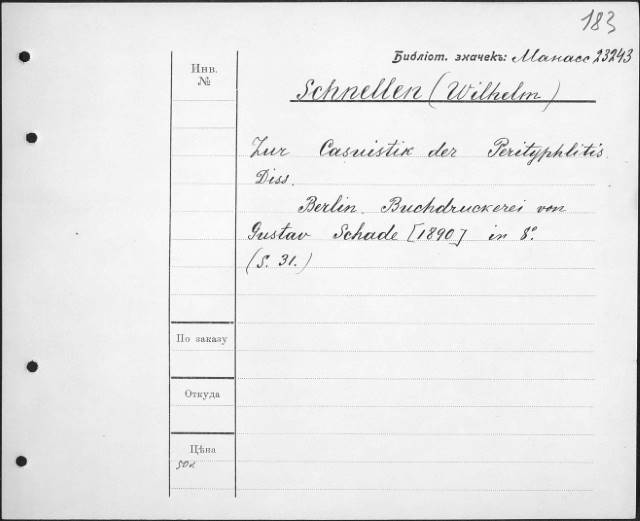 183
Библіот. значекъ: Манасс 23243
Инв.
№
Schnellen (Wilhelm)
Zur Casuistik der Perityphlitis.
Diss.
Berlin. Buchdruckerei von
Gustav Schade [1890] in 8º.
(S. 31.)
По заказу
Откуда
Цѣна
50к